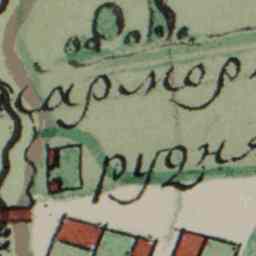 сармор
рудня